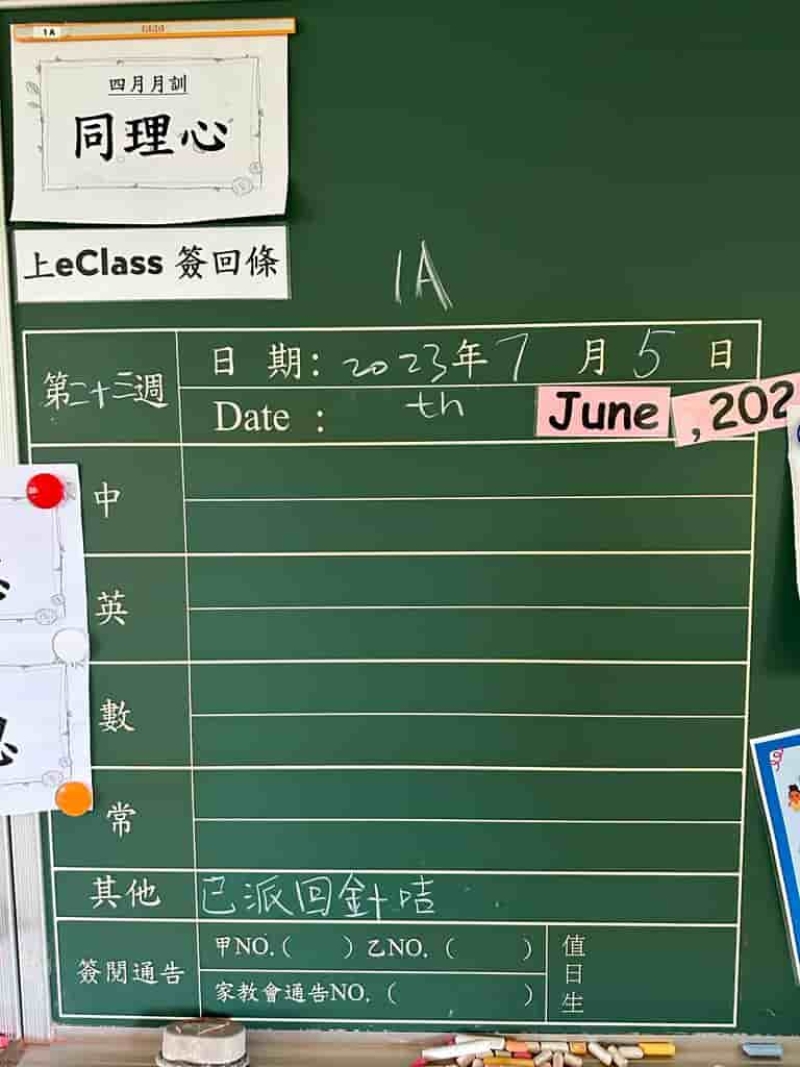 1A
四月月訓
同理心
上eClass 簽回條
1A
第二十三週
日 期：2023年7月5日
Date : th June ,202
中
英
數
常
其他 已派回針咭
簽閱通告
甲NO.( ) 乙NO. ( )
家教會通告NO. ( )
值日生